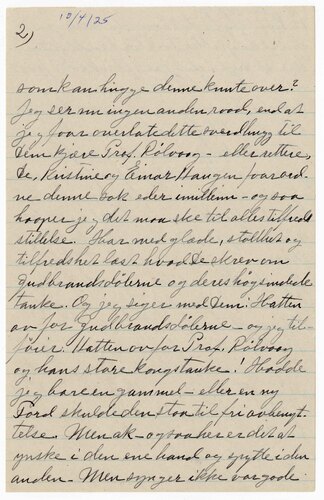 10/4/25
2)
som kan hugge denne knute over?
Jeg ser nu ingen anden raad, end at
jeg faar overlate dette sverdhugg til
Dem kjære Prof. Rølvaag - eller rettere,
De, Kristine og Einar Haugen faar ord-
ne denne sak eder imellem - og saa
haaper jeg det maa ske til alles tilfreds
stillelse. Har med glæde, stolthet og
tilfredshet læst hvad De skrev om
gudbrandsdølerne og deres høgsinnede
tanke. Og jeg seger med Dem: Hatten
av for gudbrandsdølerne - og jeg til-
føier: Hatten av for Prof. Rølvaag
og hans store kongstanke. Hadde
jeg bare en gammel - eller en ny
Ford skulde den staa til fri avbenyt-
telse. Men ak - ogsaa her er det at
ynske i den ene hand og spytte i den
anden - Men synger ikke vor gode